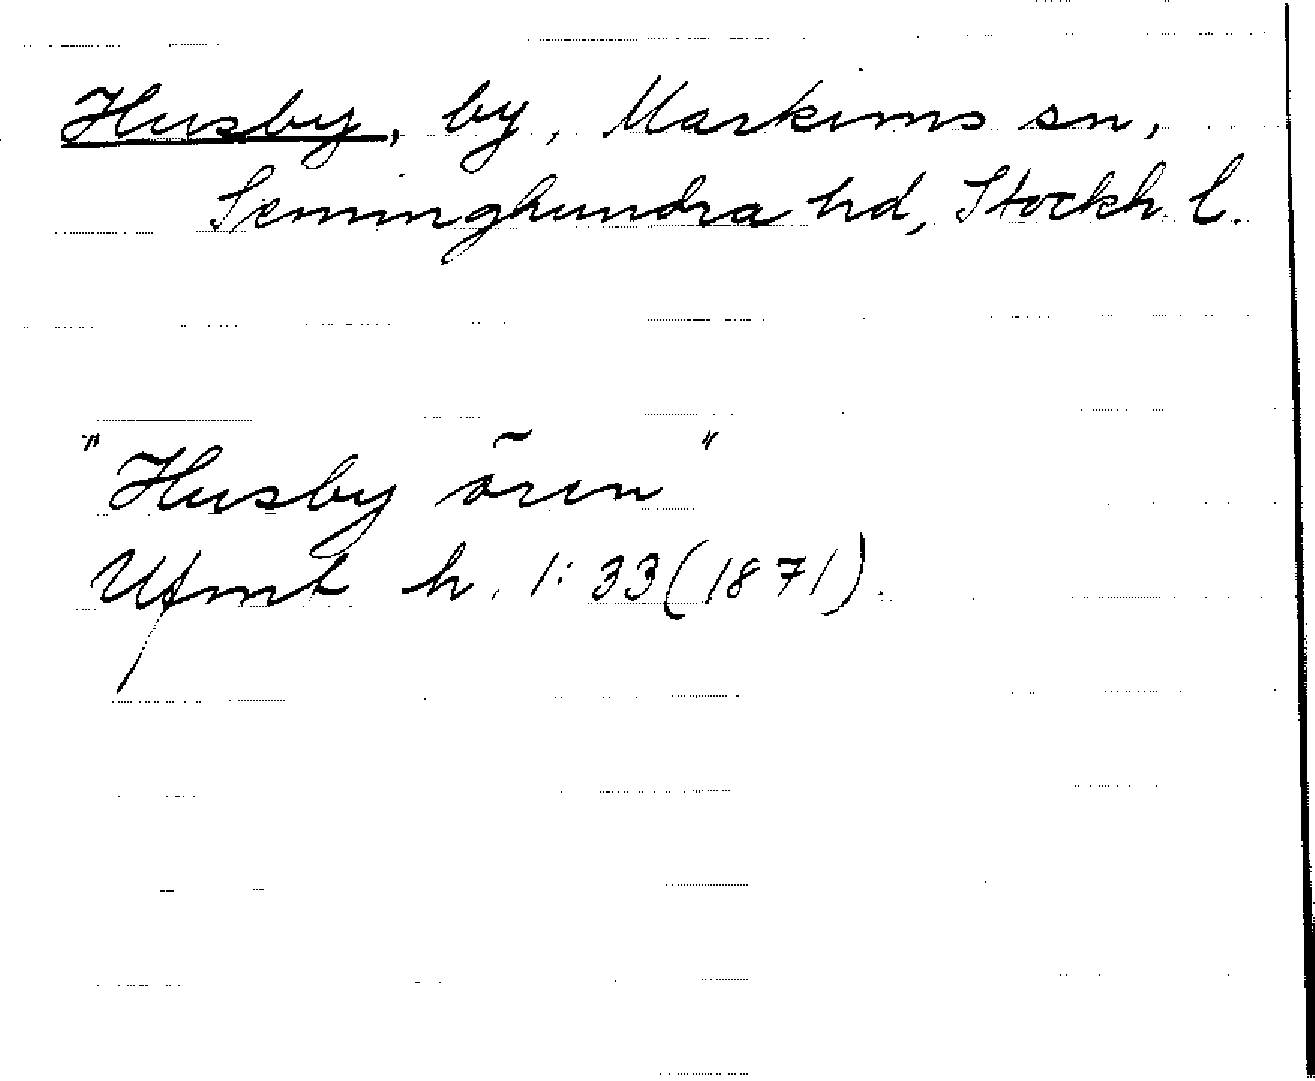 Husby, by, Markims sn,
Seminghundra hd, Stockh. l.
"Husby ören"
Ufmt h. 1: 33 (1871).